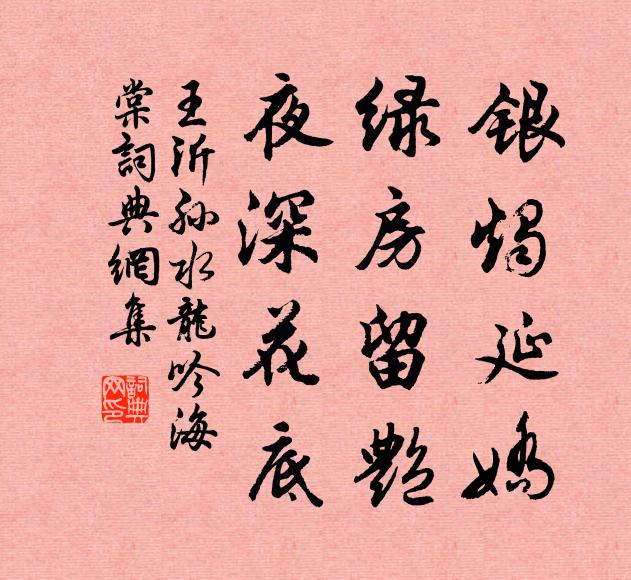 银烛延娇
绿房留艳
夜深花底
王沂孙水龙吟海
棠词典网集
词典
网印